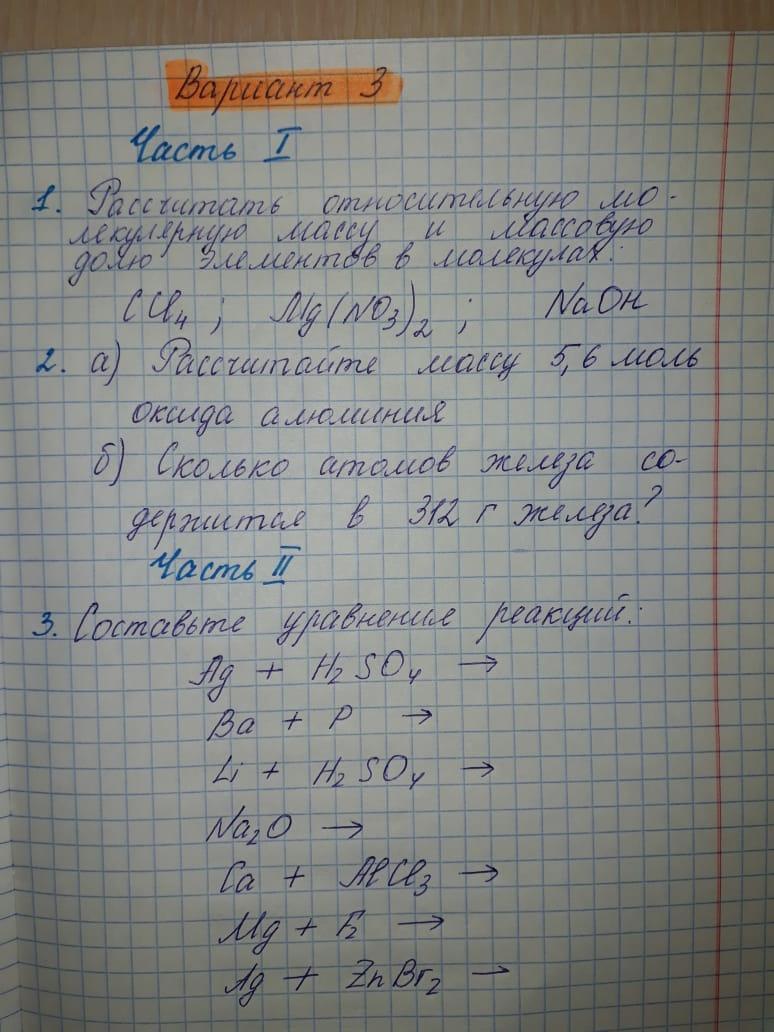 Вариант 3
Часть I
1. Рассчитать относительную мо-
лекулярную массу и массовую
долю элементов в молекулах:
CCl₄ ; Mg(NO₃)₂ ; NaOH
2. а) Рассчитайте массу 5,6 моль
оксида алюминия
б) Сколько атомов железа со-
держится в 312 г железа?
Часть II
3. Составьте уравнения реакций:
Ag + H₂SO₄ →
Ba + P →
Li + H₂SO₄ →
Na₂O →
Ca + AlCl₃ →
Mg + F₂ →
Ag + ZnBr₂ →